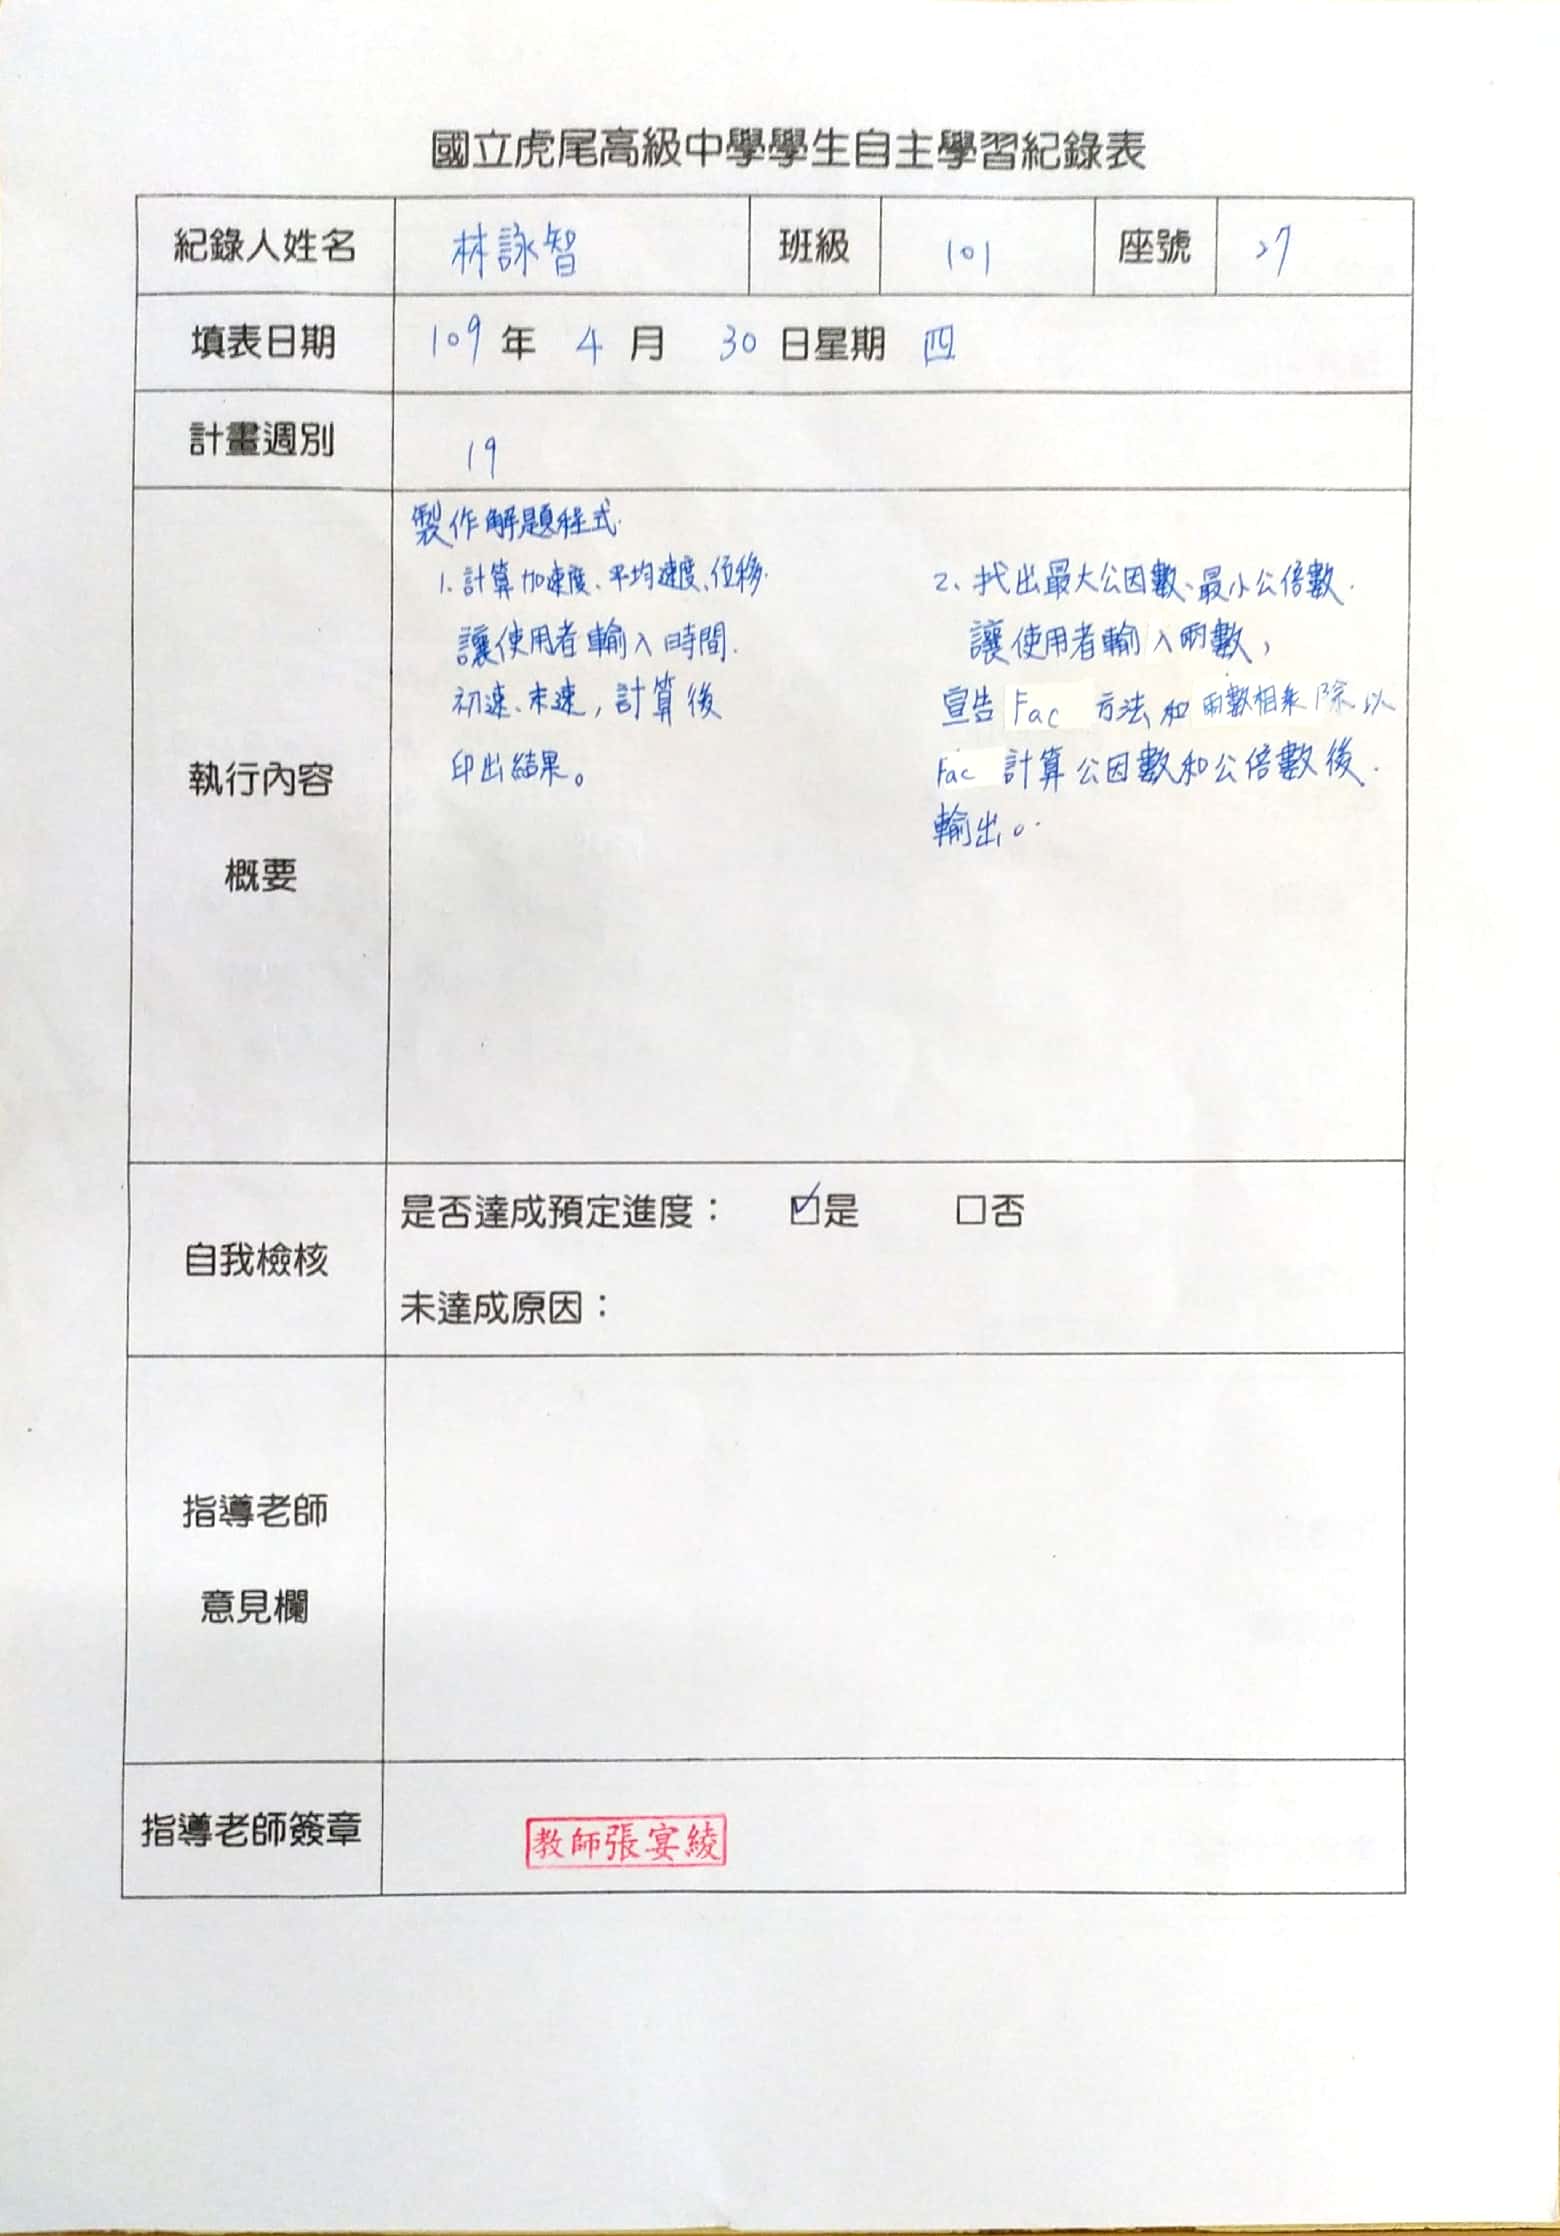 國立虎尾高級中學學生自主學習紀錄表
紀錄人姓名 林詠智 班級 101 座號 27
填表日期 109 年 4 月 30 日星期 四
計畫週別 19
執行內容
概要
製作解題程式.
1.計算加速度、平均速度、位移.
讓使用者輸入時間.
初速、末速,計算後
印出結果。
2、找出最大公因數、最小公倍數.
讓使用者輸入兩數,
宣告 Fac 方法和兩數相乘除以
Fac 計算公因數和公倍數後.
輸出。
自我檢核
是否達成預定進度： ☑是 □否
未達成原因：
指導老師
意見欄
指導老師簽章 教師張宴綾